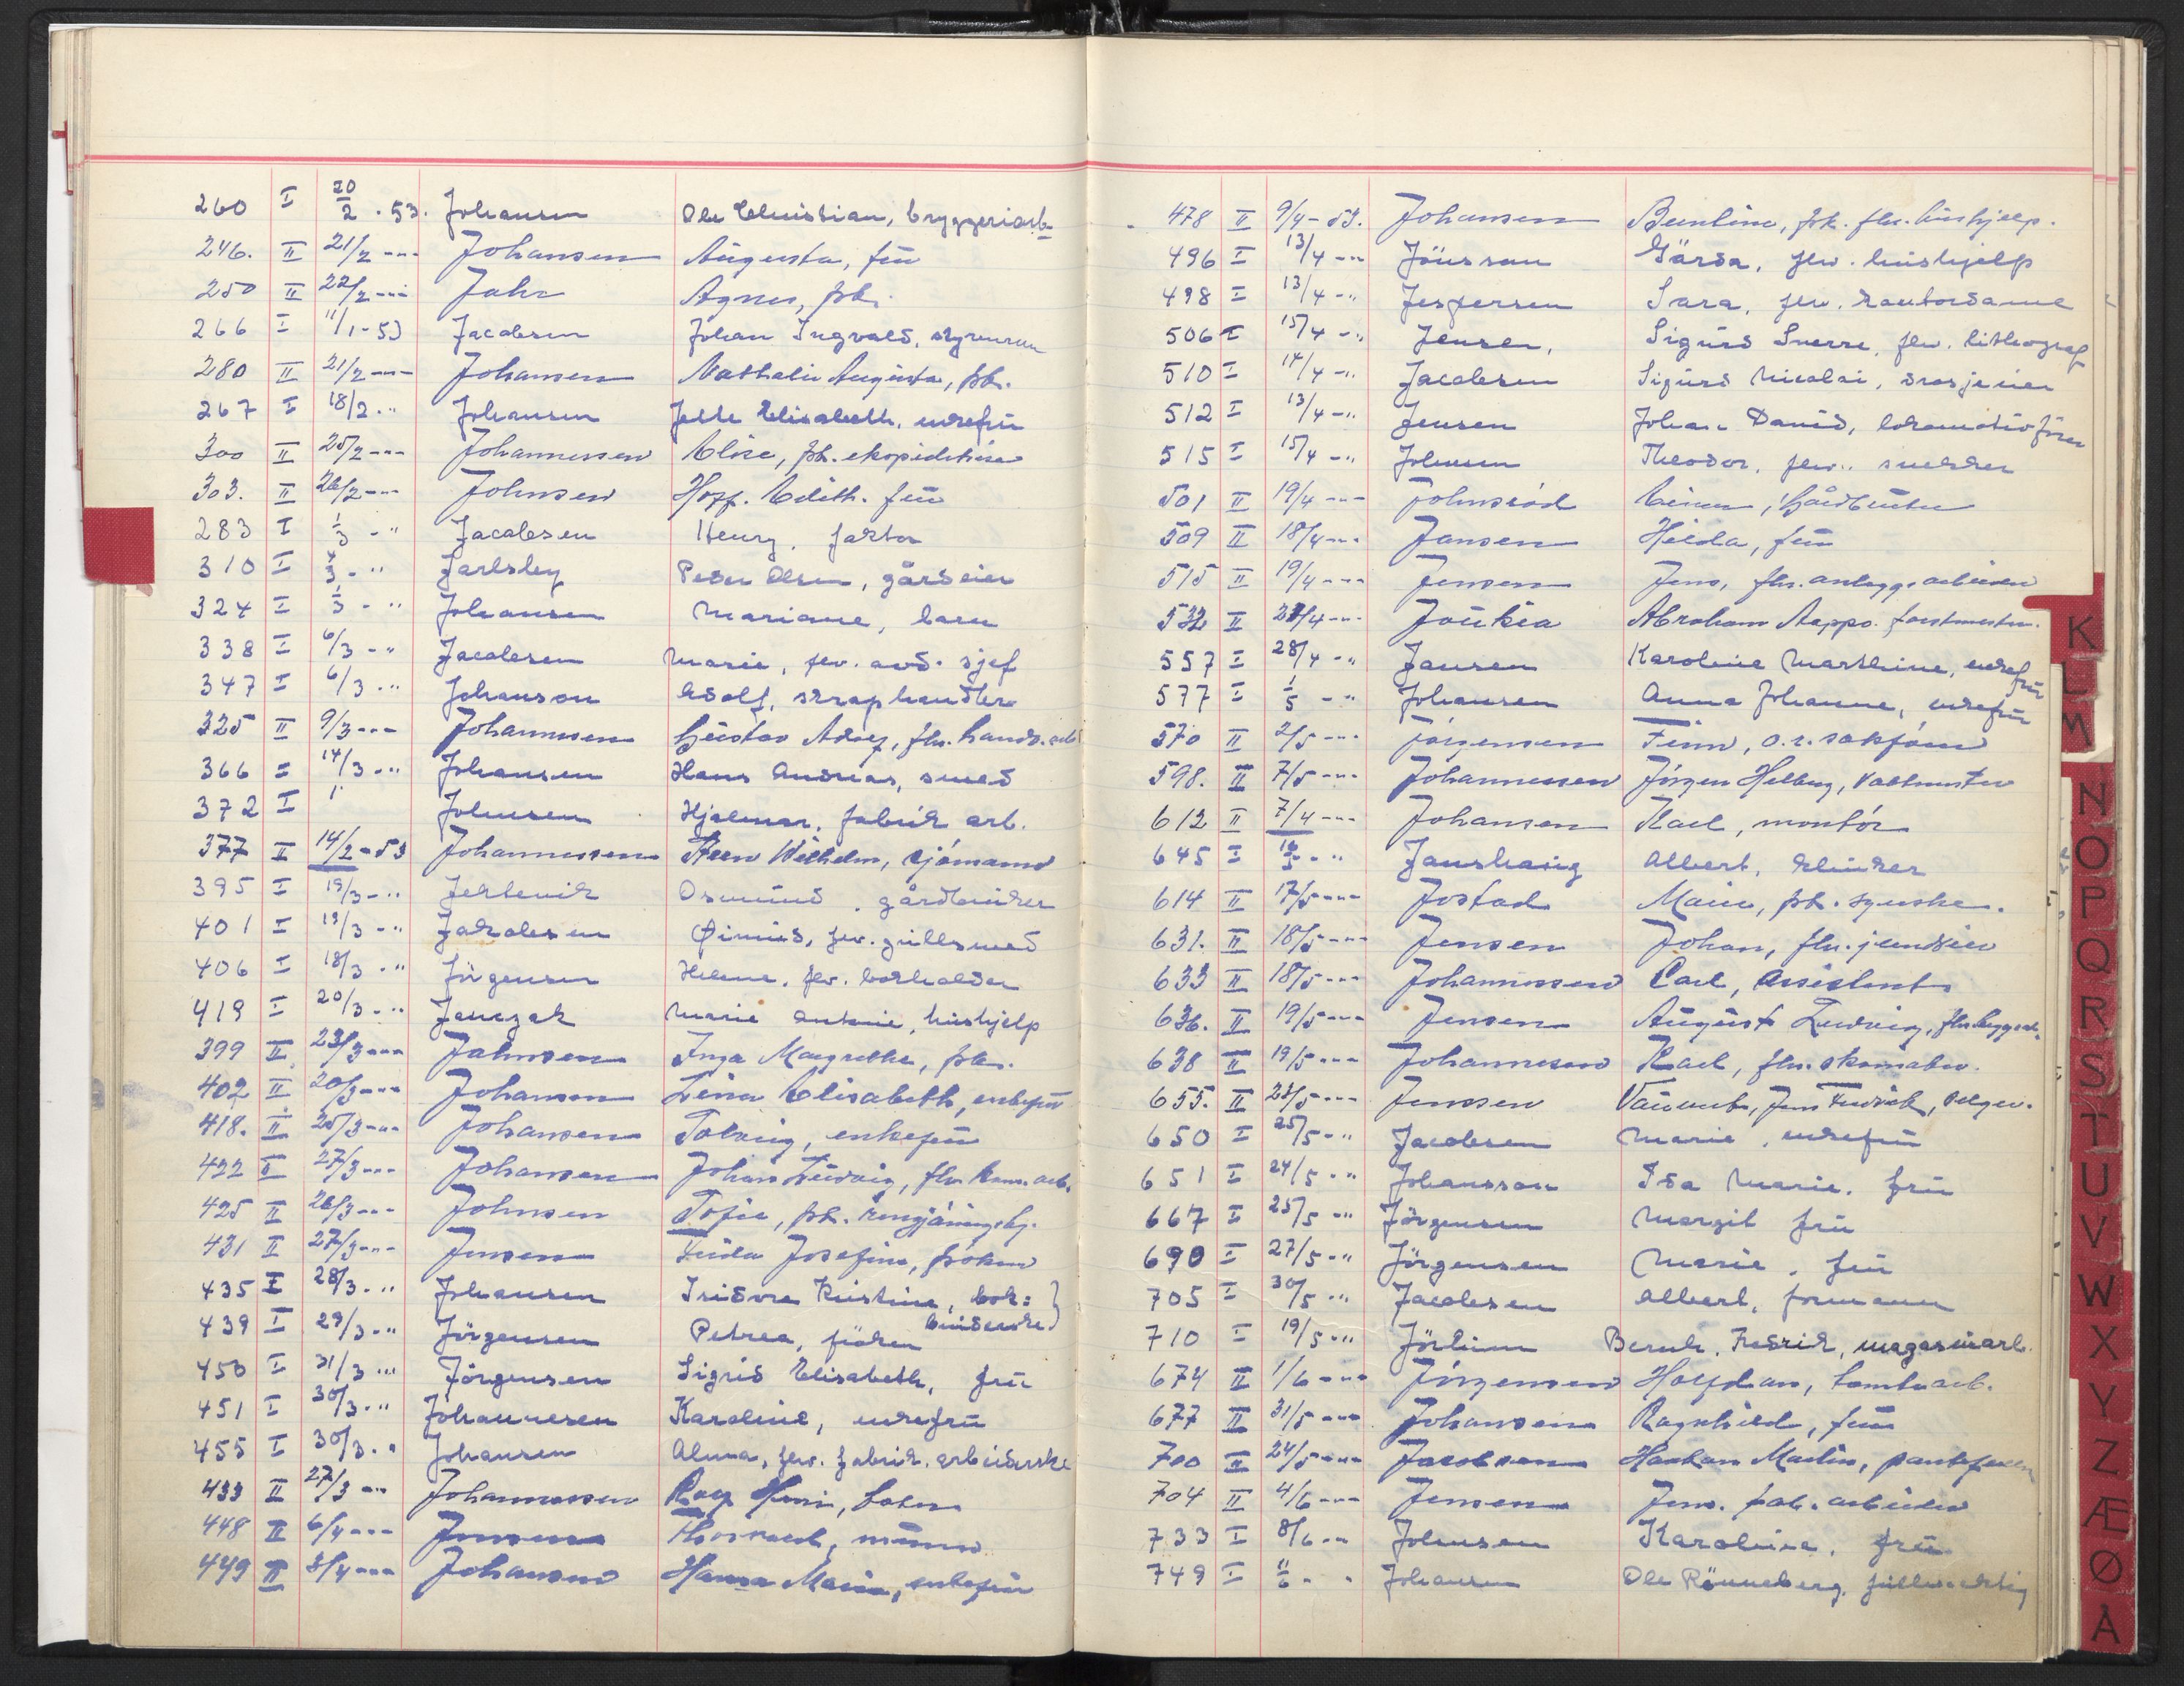 260 I 20/2 . 53. Johansen Ole Christian, bryggeriarb.
246. II 21/2 -"- Johansen Augusta, fru
250 II 22/2 -"- Jahr Agnes, frk.
266 I 11/1 - 53 Jacobsen Johan Ingvald, styrmann
280 II 21/2 -"- Johansen Nathalie Augusta, frk.
267 I 18/2 . " Johansen Elisabeth, enkefru
300 II 25/2 -"- Johannessen Elise, frk. ekspeditrise
303. II 26/2 -"- Johnsen Edith. fru
283 I 1/3 - " Jacobsen Henry. faktor
310 I 4/3 - " Jarlsby Peder Olsen, gårdeier
324 I 1/3 - " Johansen Mariane, barn
338 I 6/3 - " Jacobsen Marie, few. avd. sjef
347 I 6/3 . " Johanson Adolf, skraphandler
325 II 9/3 -"- Johannessen Gustav Adolf, fhv.
366 I 14/3 - " Johansen Hans Andreas, smed
372 I " Johnsen Hjalmar, fabrik arb.
377 II 14/2 - 53 Johannessen Wilhelm, sjømand
395 I 19/3 - " Jektevik Osmund, gårdbruker
401 I 19/3 - " Jakobsen Øivind, fev. gullsmed
406 I 18/3 . " Jörgensen Helene, fev. bokholder
419 I 20/3 - " Janczak Marie Antonie, hushjelp
399 II 23/3 -"- Jahnsen Inga Margrethe, frk.
402 II 20/3 -"- Johansen Lina Elisabeth, enkefru
418. II 25/3 -"- Johansen Solveig, enkefru
422 II 27/3 -"- Johansen Johan Ludvig, fhv. kom. arb.
425 II 26/3 -"- Johnsen Sofie, frk. rengjöringshj.
431 II 27/3 -"- Jensen Josefine, fröken
435 I 28/3 . " Johansen Isidora Kristine, bok:
binderske }
439 I 29/3 - " Jörgensen Petrea, fröken
450 I 31/3 . " Jörgensen Sigrid Elisabeth, fru
451 I 30/3 . " Johannesen Karoline, enkefru
455 I 30/3 . " Johansen Alma, fev. fabrik. arbeiderske
433 II 27/3 -"- Johannessen Roy
448 II 6/4 -"- Jensen Thorvald, murer
449 II 3/4 -"- Johansen Hanna Marie, enkefru
478 II 9/4 - 53. Johansen Berntine, frk. fhv. hushjelp.
496 I 13/4 -"- Jönsson Gärda, few. hushjelp
498 I 13/4 - " Jespersen Sara, few. kontordame
506 I 15/4 - " Jensen, Sigurd Sverre, few. lithograf
510 I 14/4 - " Jacobsen Sigurd Nicolai, drosjeeier
512 I 13/4 - " Jensen Johan David, lokomotivförer
515 I 15/4 - " Johnsen Theodor, few. snekker
501 II 19/4 -"- Johnsröd Einar, Gårdbruker
509 II 18/4 -"- Jansen Hilda, fru
515 II 19/4 -"- Jensen Jens, fhv. anleggsarbeider
532 II 22/4 -"- Joukia Abraham Aappo. forstmester.
557 I 28/4 - " Jansen Karoline Marthine, enkefru
577 I 1/5 - " Johansen Anna Johanne, enkefru
570 II 2/5 -"- Jörgensen Finn, o.r. sakförer
598. II 7/5 -"- Johannessen Jörgen Helberg, Vaktmester
612 II 7/4 -"- Johansen Karl, montör
645 I Janshaug Albert, klinker
614 II 17/5 -"- Jostad Marie, frk. syerske.
631. II 18/5 -"- Jensen Johan, fhv.
633 II 18/5 -"- Johannessen Carl, Assistent
636. II 19/5 -"- Jensen August Ludvig, fhv.
638 II 19/5 -"- Johannesen Karl, fhv. skomaker.
655. II 23/5 -"- Jensen Jens Fredrik, selger.
650 I 25/5 - " Jacobsen Marie, enkefru
651 I 24/5 . " Johansson Ida Marie. fru
667 I 25/5 - " Jörgensen Margit fru
690 I 27/5 - " Jörgensen Marie, fru
705 I 30/5 . " Jacobsen Albert, formann
710 I 19/5 - " Bernh. Fredrik, magasinarb.
674 II 1/6 -"- Jörgensen Halfdan, tomtearb.
677 II 31/5 -"- Johansen Ragnhild, fru
700 II 24/5 -"- Jacobsen Haakon Martin,
704 II 4/6 -"- Jensen Jens. fab. arbeider
733 I 8/6 -"- Johnsen Karoline, fru
749 I 11/6 - " Johansen Ole Rönneberg, fullmektig
K
L
M
N
O
P
Q
R
S
T
U
V
W
X
Y
Z
Æ
Ø
Å